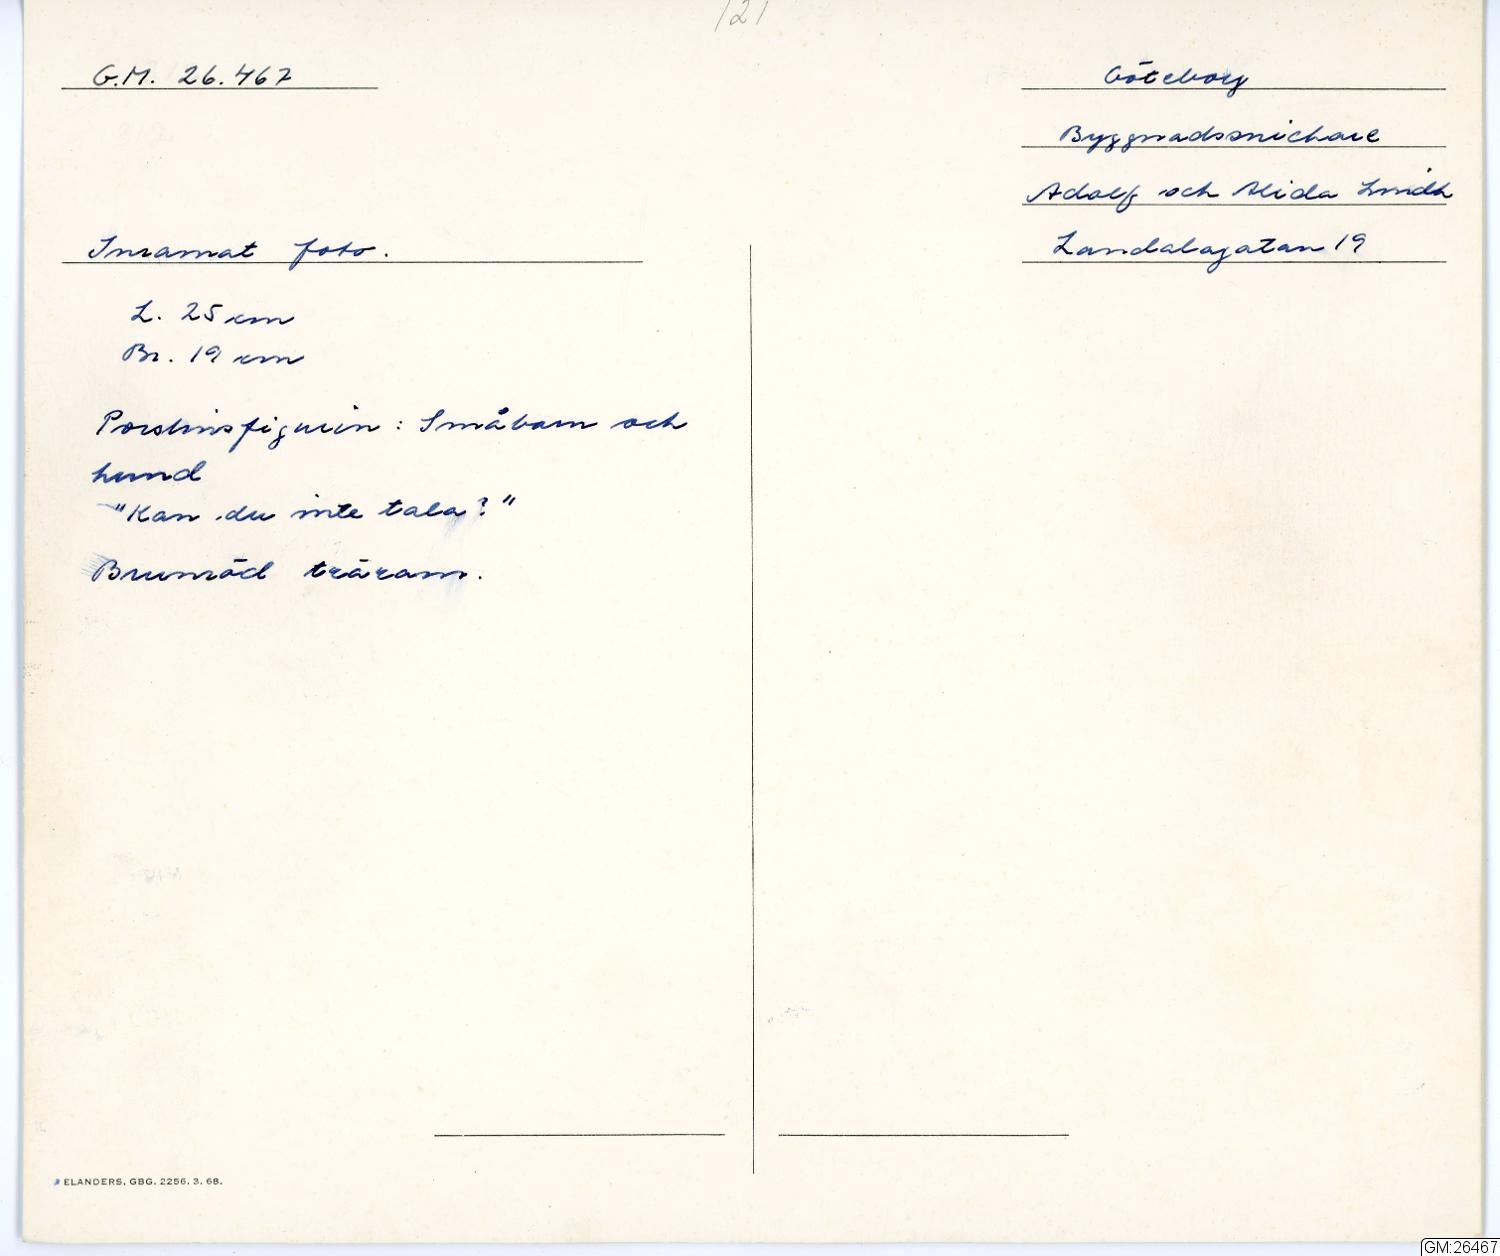 121
G.M. 26.467
Göteborg
Byggnadssnickare
Adolf och Alida Lindh
Landalagatan 19
Inramat foto.
L. 25 cm
Br. 19 cm
Porslinsfigurin: Småbarn och
hund
"Kan du inte tala?"
Brunröd träram.
ELANDERS, GBG. 2256. 3. 68.
GM:26467